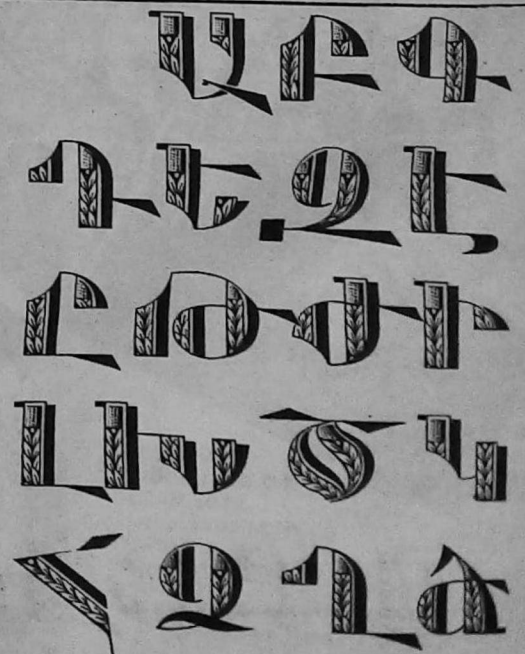 Ա Բ Գ
Դ Ե Զ Է
Ը Թ Ժ Ի
Լ Խ Ծ Կ
Հ Ձ Ղ Ճ